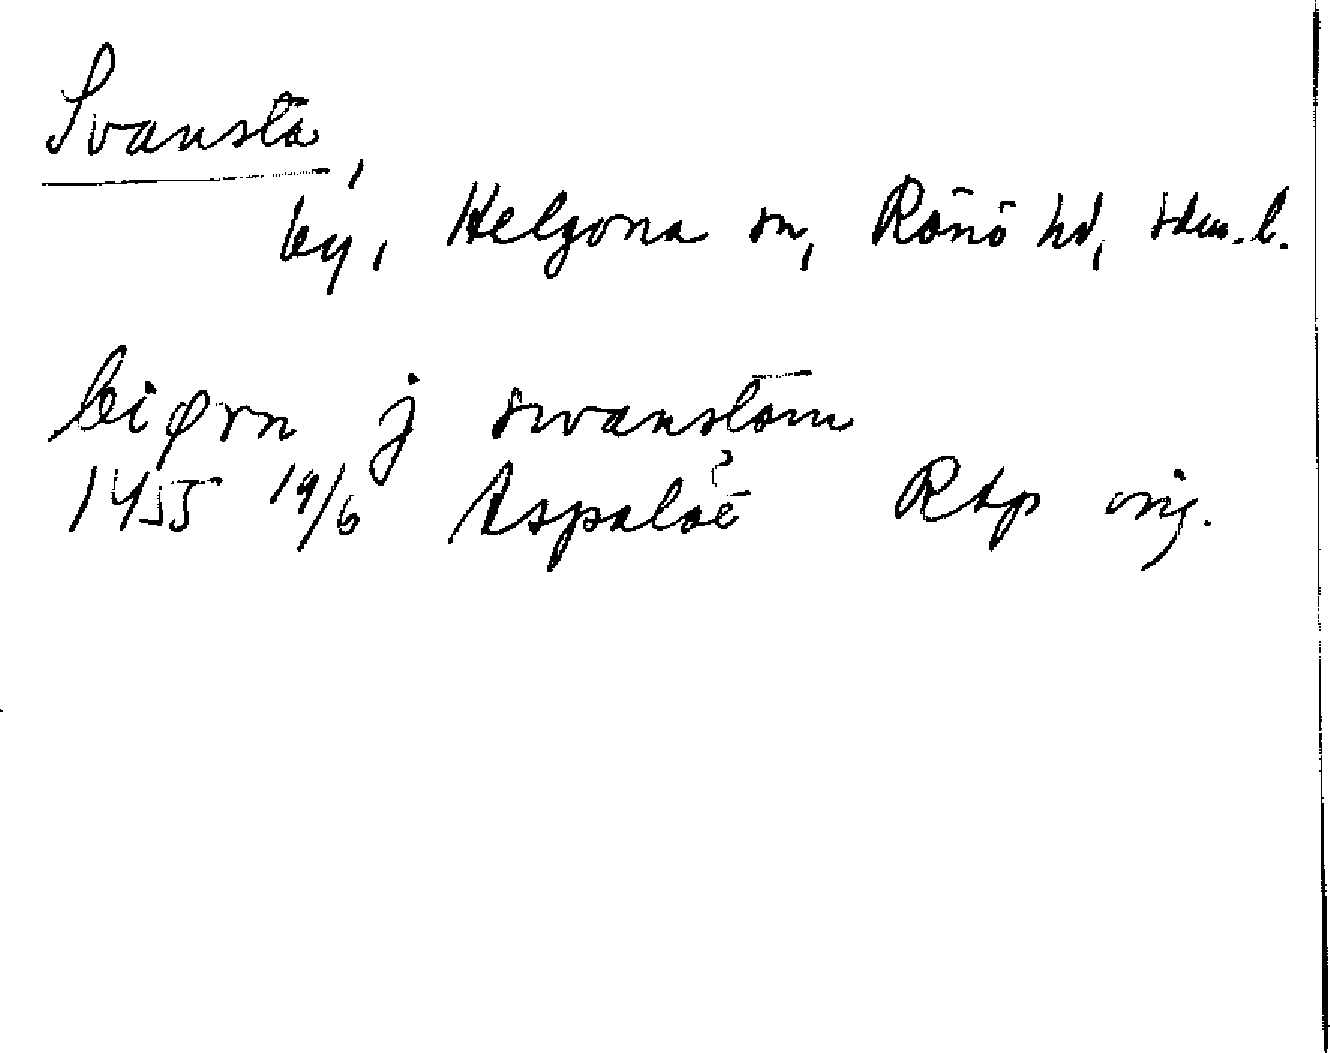 Svansta,
by, Helgona sn, Rönö hd, Sdm. l.
biørn j swanstom
1455 19/6 Aspaløe ? RAp orig.